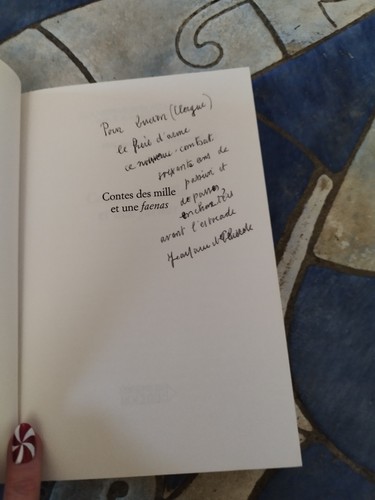 Pour Lucien (Clergue)
le frère d'arme
ce nouveau contrat
soixante ans de
passion et
Contes des mille
de passes
et une faenas
enchantées
avant l'estocade